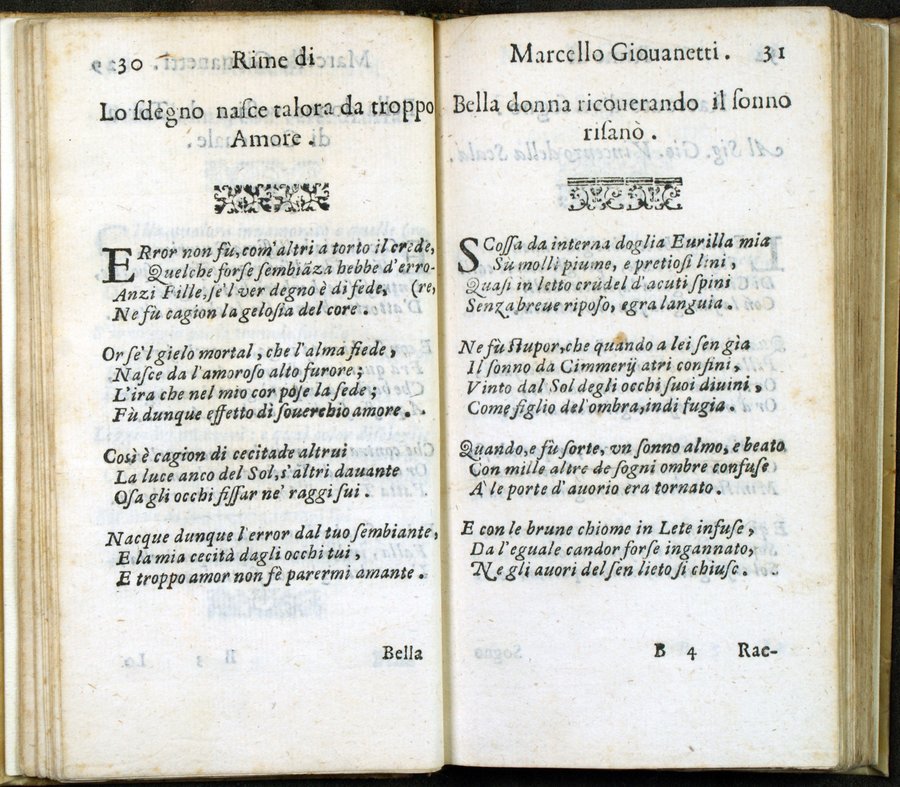 30 Rime di
Lo sdegno nasce talora da troppo
Amore.
ERror non fù, com'altri a torto il crede,
Quelche forse sembiãza hebbe d'erro-
Anzi Fille, se'l ver degno è di fede, (re,
Ne fù cagion la gelosia del core.
Or sè'l gielo mortal, che l'alma fiede,
Nasce da l'amoroso alto furore;
L'ira che nel mio cor pose la sede;
Fù dunque effetto di souerchio amore.
Così è cagion di cecitade altrui
La luce anco del Sol, s'altri dauante
Osa gli occhi fissar ne' raggi sui.
Nacque dunque l'error dal tuo sembiante,
E la mia cecità dagli occhi tui,
E troppo amor non fè parermi amante.
Bella
Marcello Giouanetti. 31
Bella donna ricouerando il sonno
risanò.
SCossa da interna doglia Eurilla mia
Sù molli piume, e pretiosi lini,
Quasi in letto crudel d'acuti spini
Senza breue riposo, egra languia.
Ne fù stupor, che quando a lei sen gia
Il sonno da Cimmerij atri confini,
Vinto dal Sol degli occhi suoi diuini,
Come figlio del'ombra, indi fugia.
Quando, e fù sorte, vn sonno almo, e beato
Con mille altre de sogni ombre confuse
A le porte d'auorio era tornato.
E con le brune chiome in Lete infuse,
Da l'eguale candor forse ingannato,
Ne gli auori del sen lieto si chiuse.
B 4 Rae-